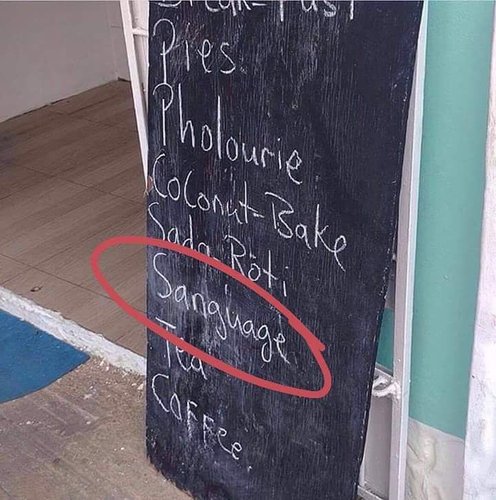 Break-Fast
Pies
Pholourie
Coconut-Bake
Sada-Roti
Sanguage
Tea
COFFee.